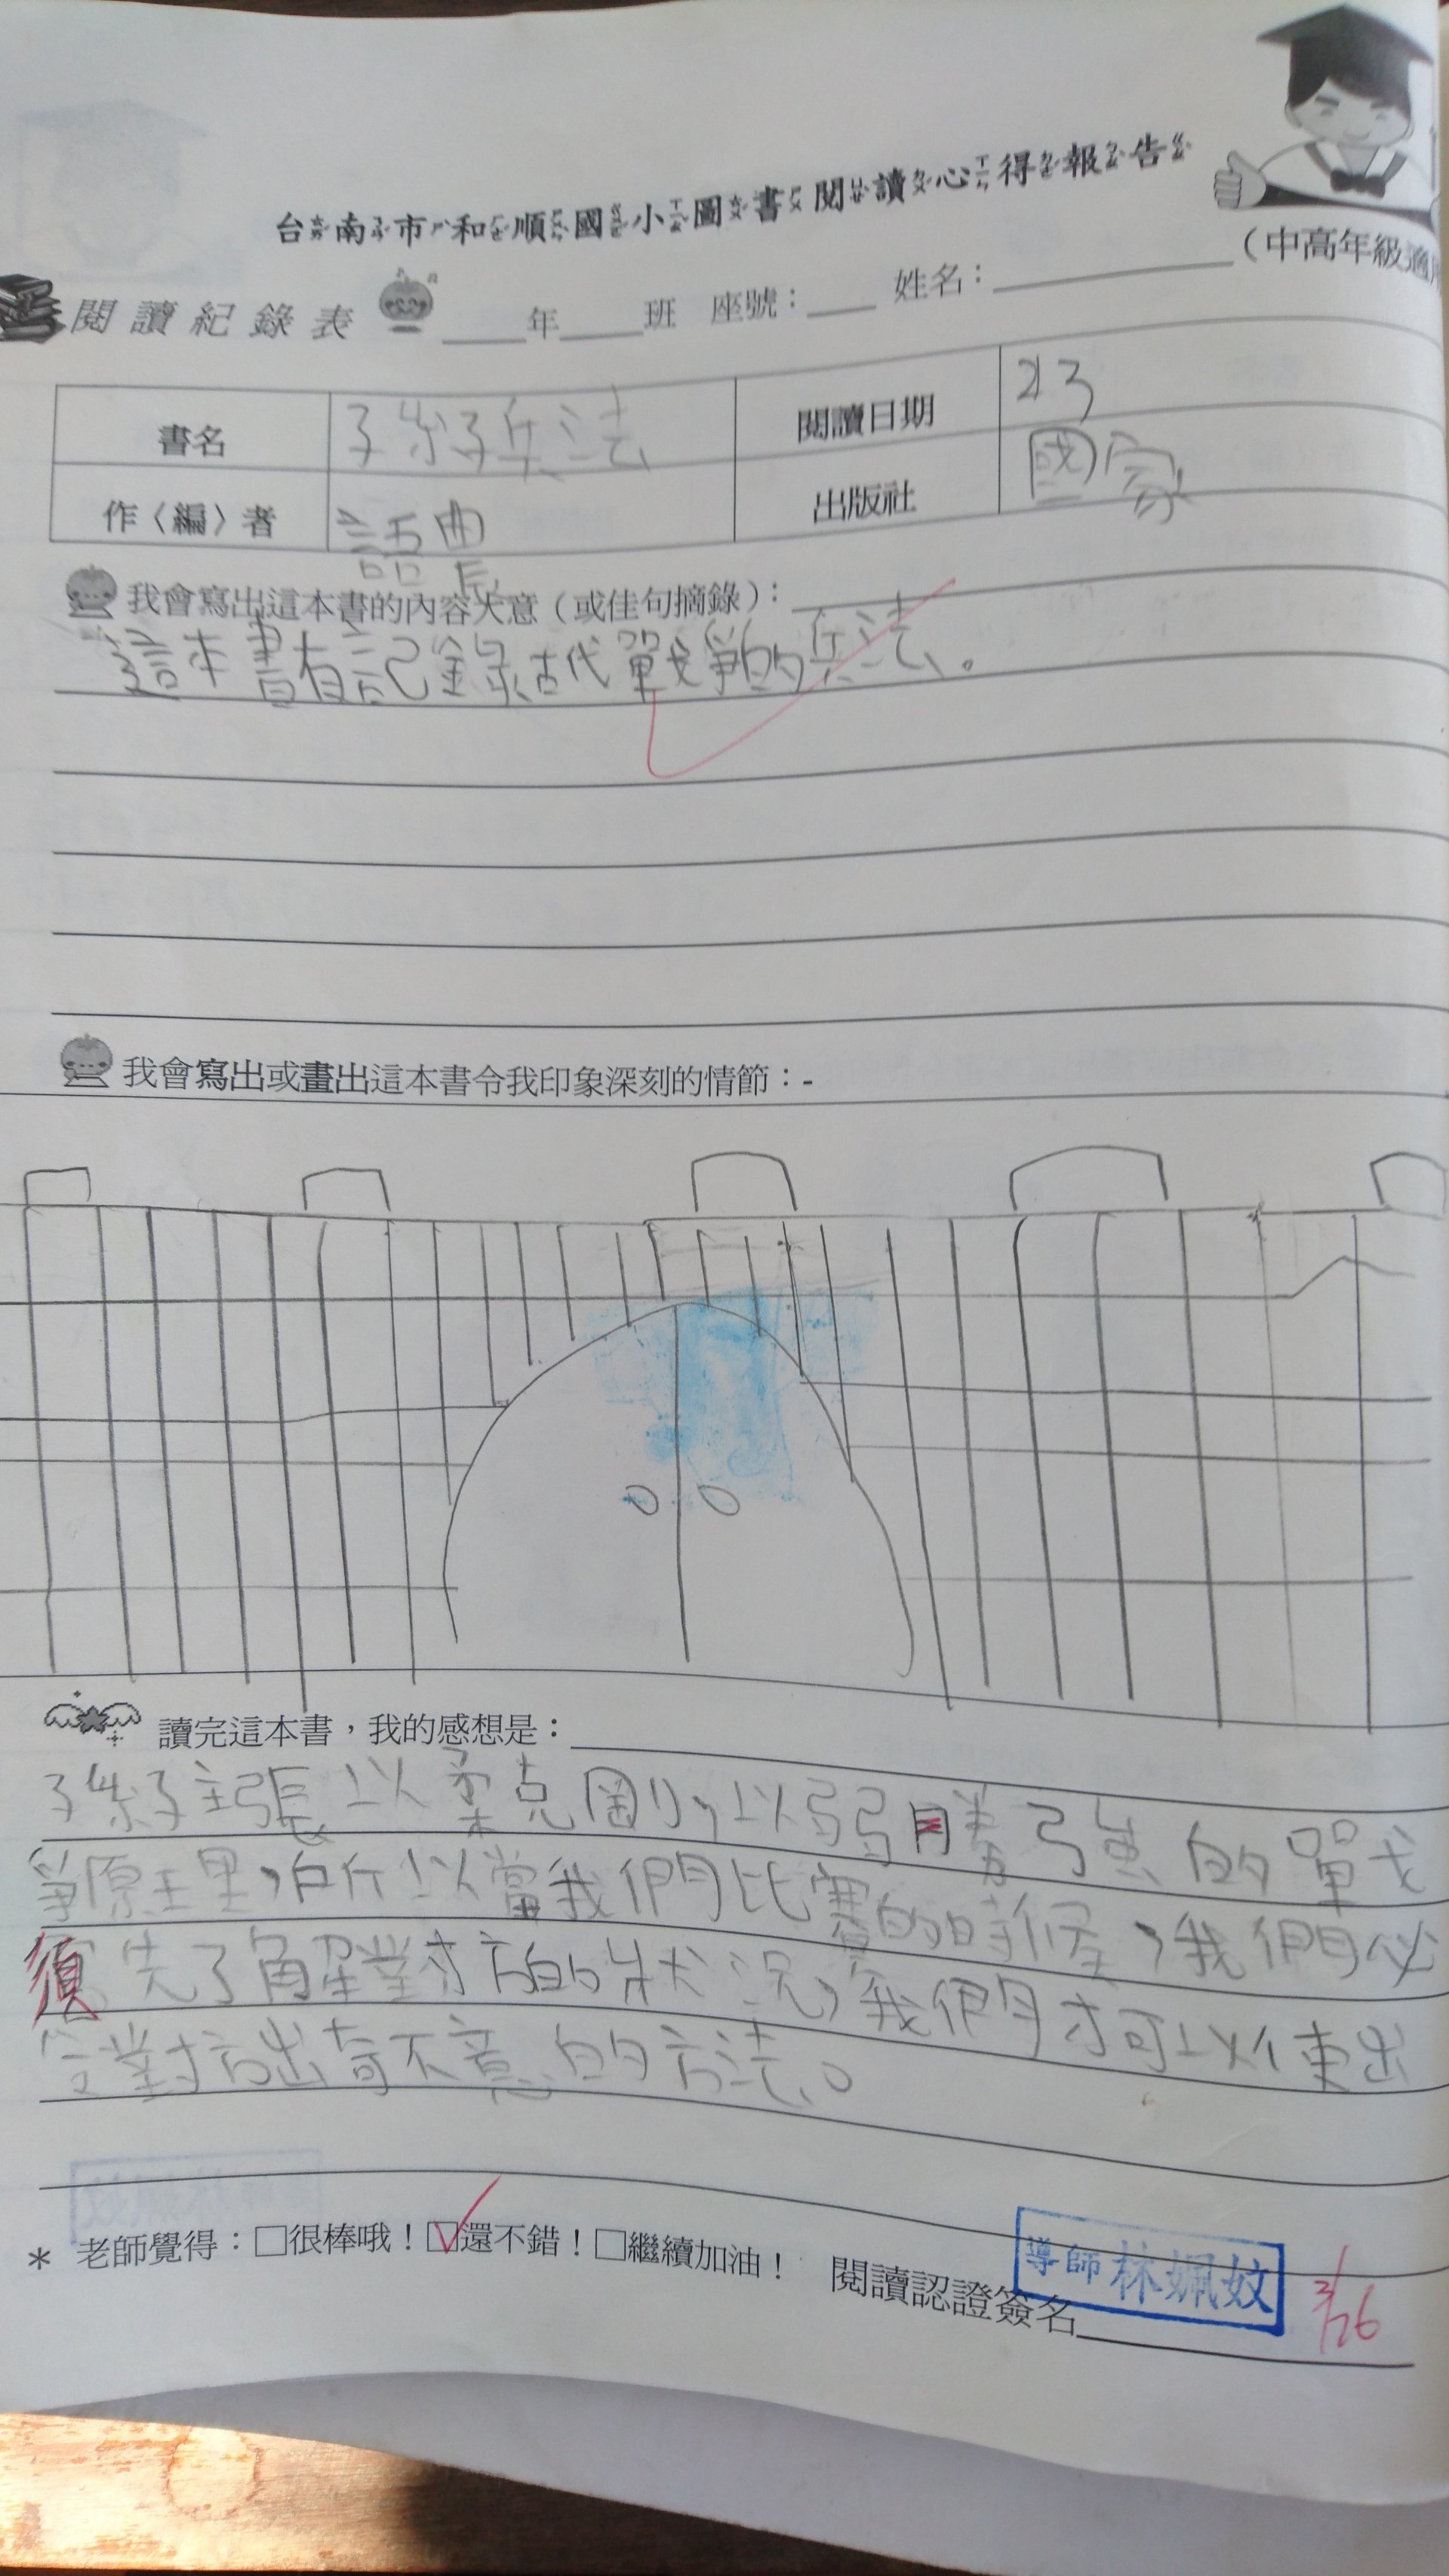 台南市和順國小圖書閱讀心得報告
(中高年級適用
閱讀紀錄表 ____年____班 座號：___ 姓名：__________
書名 孫子兵法 閱讀日期
作〈編〉者 語農 出版社 國家
我會寫出這本書的內容大意（或佳句摘錄）：
這本書有記錄古代戰爭的兵法。
我會寫出或畫出這本書令我印象深刻的情節：-
讀完這本書，我的感想是：
孫子主張以柔克剛，以弱勝強的戰
爭原理，所以當我們比賽的時候，我們必
須先了解對方的狀況，我們才可以使出
令對方出奇不意的方法。
* 老師覺得：□很棒哦！☑還不錯！□繼續加油！ 閱讀認證簽名
導師 林姵妏
3/26